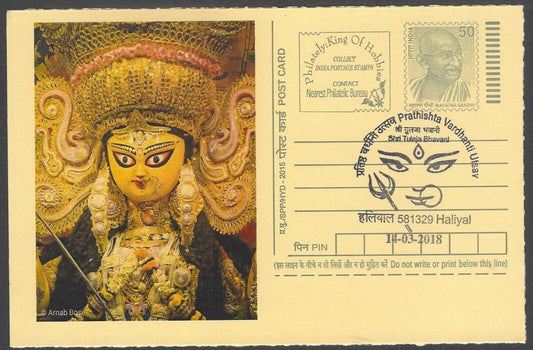 © Arnab Bose
प्र.मु./SPP/HYD - 2015 पोस्ट कार्ड POST CARD
Philately: King Of Hobbies
COLLECT
INDIA POSTAGE STAMPS
CONTACT
Nearest Philatelic Bureau
भारत INDIA
50
महात्मा गाँधी MAHATMA GANDHI
प्रतिष्ठ वर्धंती उत्सव Prathishta Vardhanti Utsav
श्री तुलजा भवानी
Shri Tulaja Bhavani
हलियाल 581329 Haliyal
14-03-2018
पिन PIN
(इस लाइन के नीचे न तो लिखें और न ही मुद्रित करें Do not write or print below this line)